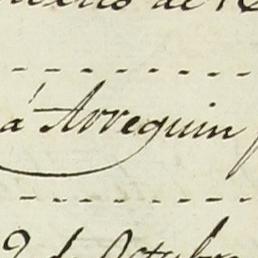 de
á Arreguin
2 de Octubre